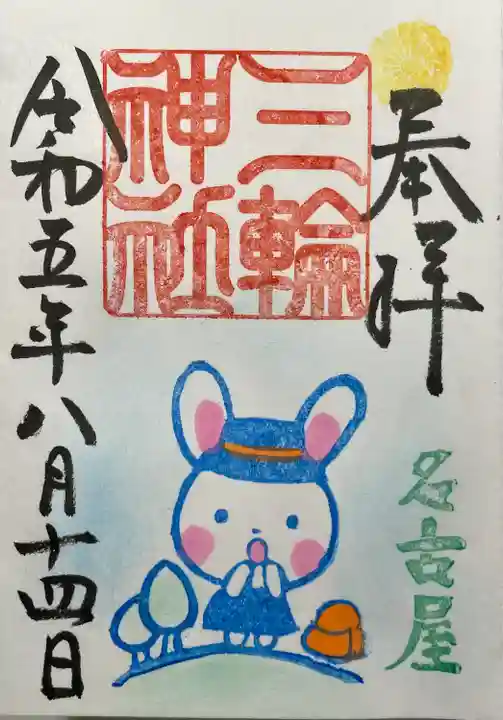 奉拝
名古屋
三輪
神社
令和五年八月十四日